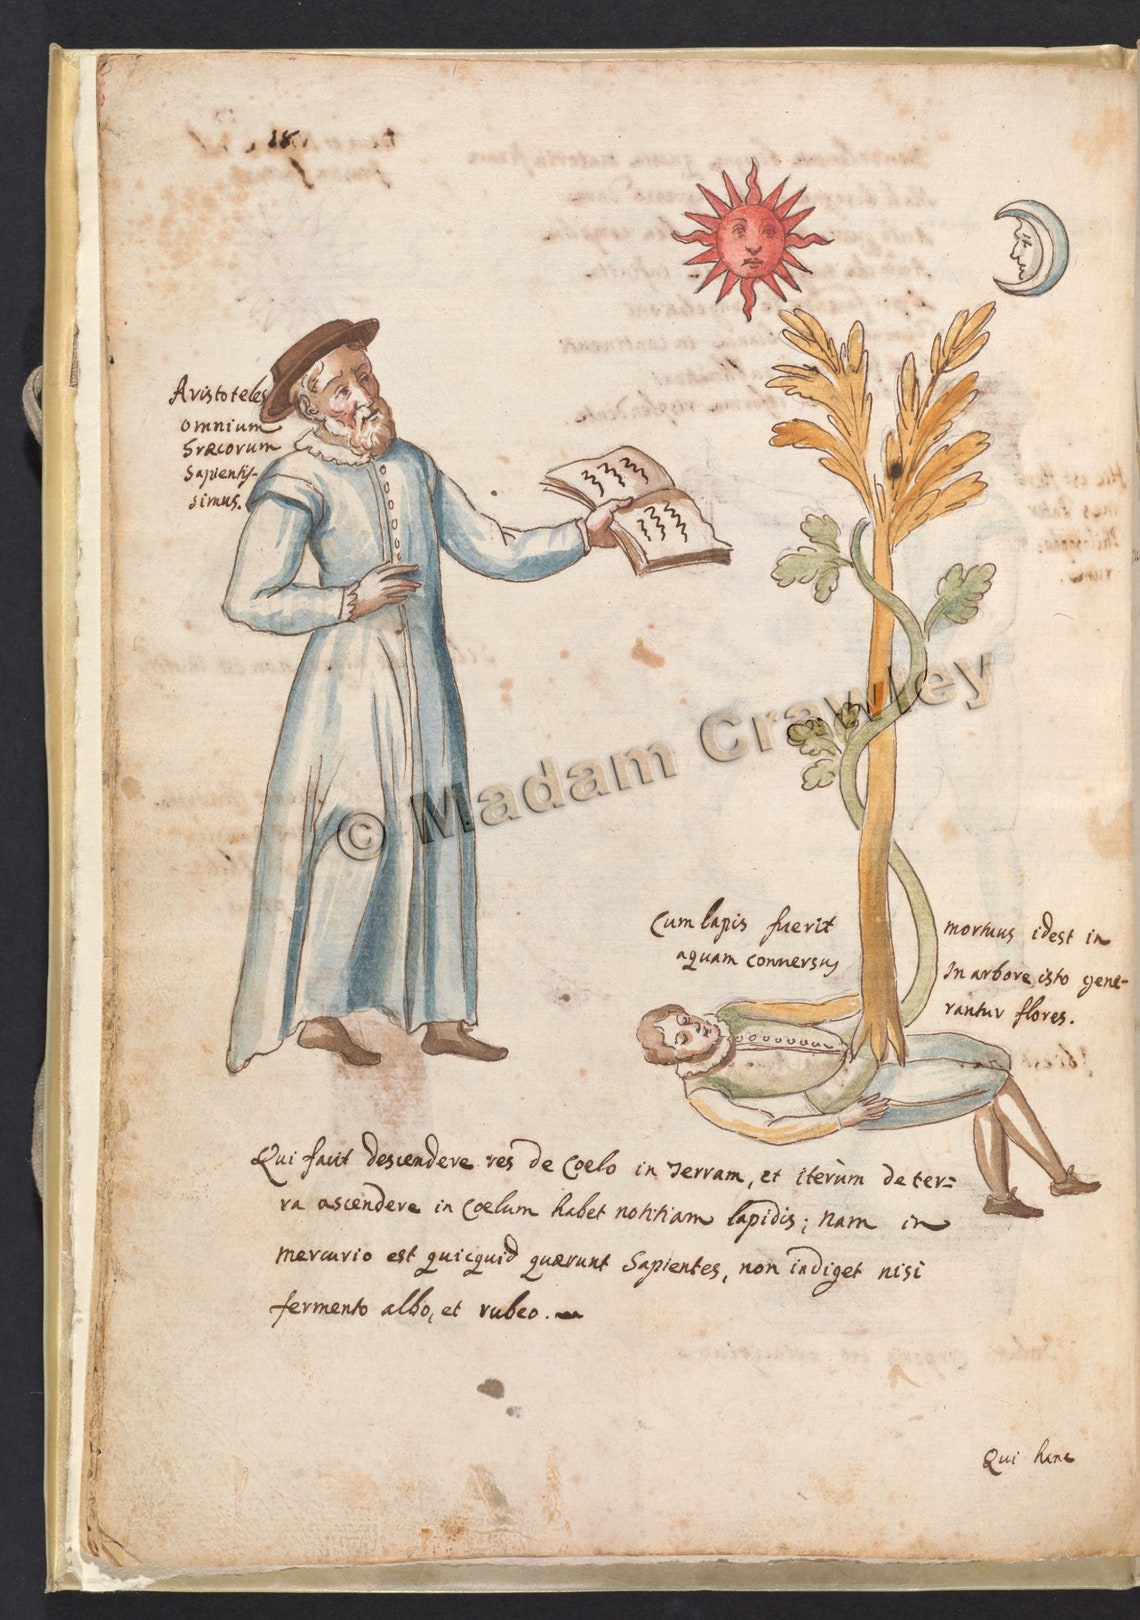 18
Aristoteles
omnium
Græcorum
Sapientis-
simus.
© Madam Crawley
Cum lapis fuerit
aquam connersus
mortuus idest in
In arbore isto gene-
rantur flores.
Qui facit descendere res de Coelo in Terram, et iterùm de ter=
ra ascendere in Coelum habet notitiam lapidis; Nam in
mercurio est quicquid quærunt Sapientes, non indiget nisi
fermento albo, et rubeo.
Qui hanc